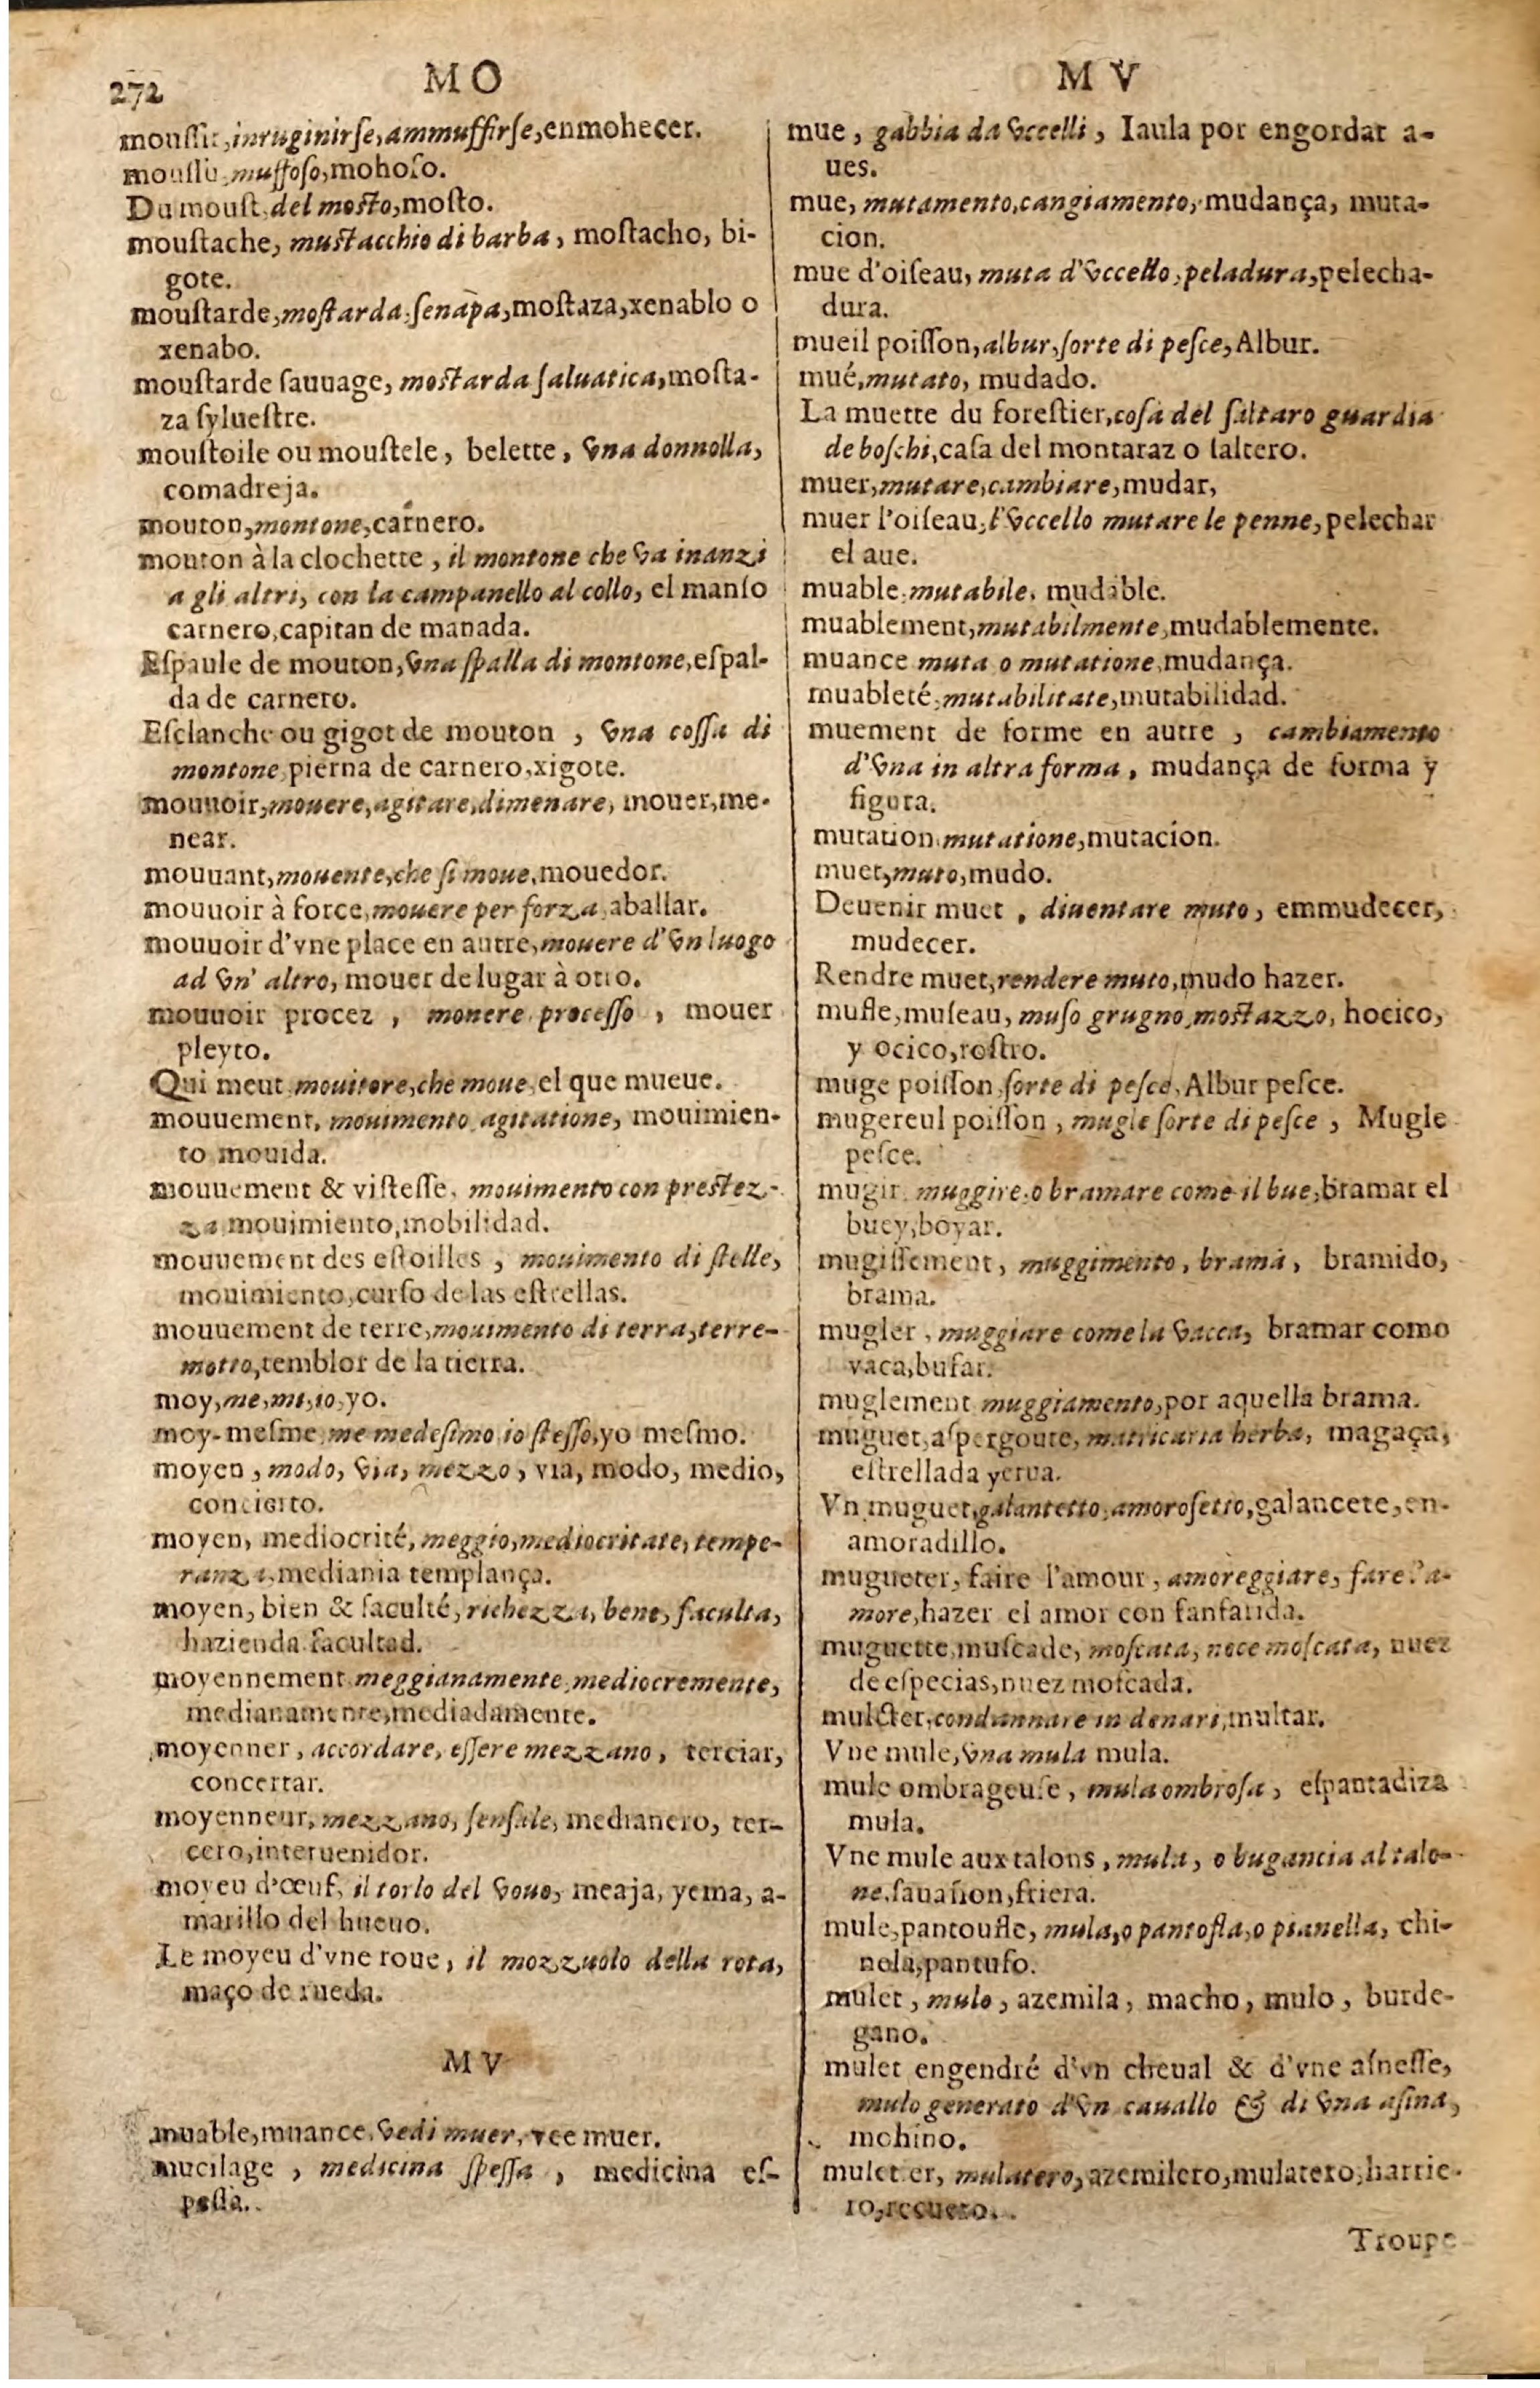 272
MO
mouſſir, inruginirſe, ammuffirſe, enmohecer.
mouſſu, muffoſo, mohoſo.
Du mouſt, del moſto, moſto.
mouſtache, muſtacchio di barba, moſtacho, bi-
gote.
mouſtarde, moſtarda, ſenapa, moſtaza, xenablo o
xenabo.
mouſtarde ſauuage, moſtarda ſaluatica, moſta-
za ſylueſtre.
mouſtoile ou mouſtele, belette, vna donnolla,
comadreja.
mouton, montone, carnero.
mouton à la clochette, il montone che va inanzi
a gli altri, con la campanello al collo, el manſo
carnero, capitan de manada.
Eſpaule de mouton, vna ſpalla di montone, eſpal-
da de carnero.
Eſclanche ou gigot de mouton, vna coſſa di
montone, pierna de carnero, xigote.
mouuoir, mouere, agitare, dimenare, mouer, me-
near.
mouuant, mouente, che ſi moue, mouedor.
mouuoir à force, mouere per forza, aballar.
mouuoir d'vne place en autre, mouere d'vn luogo
ad vn' altro, mouer de lugar à otro.
mouuoir procez, monere proceſſo, mouer
pleyto.
Qui meut, mouitore, che moue, el que mueue.
mouuement, mouimento, agitatione, mouimien-
to mouida.
mouuement & viſteſſe, mouimento con preſtez-
za, mouimiento, mobilidad.
mouuement des eſtoilles, mouimento di ſtelle,
mouimiento, curſo de las eſtrellas.
mouuement de terre, mouimento di terra, terre-
motto, temblor de la tierra.
moy, me, mi, io, yo.
moy-meſme, me medeſimo, io ſteſſo, yo meſmo.
moyen, modo, via, mezzo, via, modo, medio,
concierto.
moyen, mediocrité, meggio, mediocritate, tempe-
ranza, mediania templança.
moyen, bien & faculté, richezza, bene, faculta,
hazienda facultad.
moyennement, meggianamente, mediocremente,
medianamente, mediadamente.
moyenner, accordare, eſſere mezzano, terciar,
concertar.
moyenneur, mezzano, ſenſale, medianero, ter-
cero, interuenidor.
moyeu d'œuf, il torlo del vouo, meaja, yema, a-
marillo del hueuo.
Le moyeu d'vne roue, il mozzuolo della rota,
maço de rueda.
MV
muable, muance, vedi muer, vee muer.
mucilage, medicina ſpeſſa, medicina eſ-
peſſa.
MV
mue, gabbia da vccelli, Iaula por engordar a-
ues.
mue, mutamento, cangiamento, mudança, muta-
cion.
mue d'oiſeau, muta d'vccello, peladura, pelecha-
dura.
mueil poiſſon, albur, ſorte di peſce, Albur.
mué, mutato, mudado.
La muette du foreſtier, coſa del ſaltaro guardia
de boſchi, caſa del montaraz o ſaltero.
muer, mutare, cambiare, mudar,
muer l'oiſeau, l'vccello mutare le penne, pelechar
el aue.
muable, mutabile, mudable.
muablement, mutabilmente, mudablemente.
muance muta o mutatione, mudança.
muableté, mutabilitate, mutabilidad.
muement de forme en autre, cambiamento
d'vna in altra forma, mudança de forma y
figura.
mutation mutatione, mutacion.
muet, muto, mudo.
Deuenir muet, diuentare muto, emmudecer,
mudecer.
Rendre muet, rendere muto, mudo hazer.
mufle, muſeau, muſo grugno, moſtazzo, hocico,
y ocico, roſtro.
muge poiſſon, ſorte di peſce, Albur peſce.
mugereul poiſſon, mugle ſorte di peſce, Mugle
peſce.
mugir, muggire, o bramare come il bue, bramar el
buey, boyar.
mugiſſement, muggimento, brama, bramido,
brama.
mugler, muggiare come la vacca, bramar como
vaca, bufar.
muglement muggiamento, por aquella brama.
muguet, aſpergoute, matricaria herba, magaça,
eſtrellada yerua.
Vn muguet, galantetto, amoroſetto, galancete, en-
amoradillo.
mugueter, faire l'amour, amoreggiare, fare l'a-
more, hazer el amor con fanfarida.
muguette, muſcade, moſcata, noce moſcata, nuez
de eſpecias, nuez moſcada.
mulcter, condannare in denari, multar.
Vne mule, vna mula mula.
mule ombrageuſe, mula ombroſa, eſpantadiza
mula.
Vne mule aux talons, mula, o bugancia al talo-
ne, ſauañon, friera.
mule, pantoufle, mula, o pantofla, o pianella, chi-
nela, pantufo.
mulet, mulo, azemila, macho, mulo, burde-
gano.
mulet engendré d'vn cheual & d'vne aſneſſe,
mulo generato d'vn cauallo & di vna aſina,
mohino.
muletier, mulatero, azemilero, mulatero, harrie-
ro, recuero.
Troupe